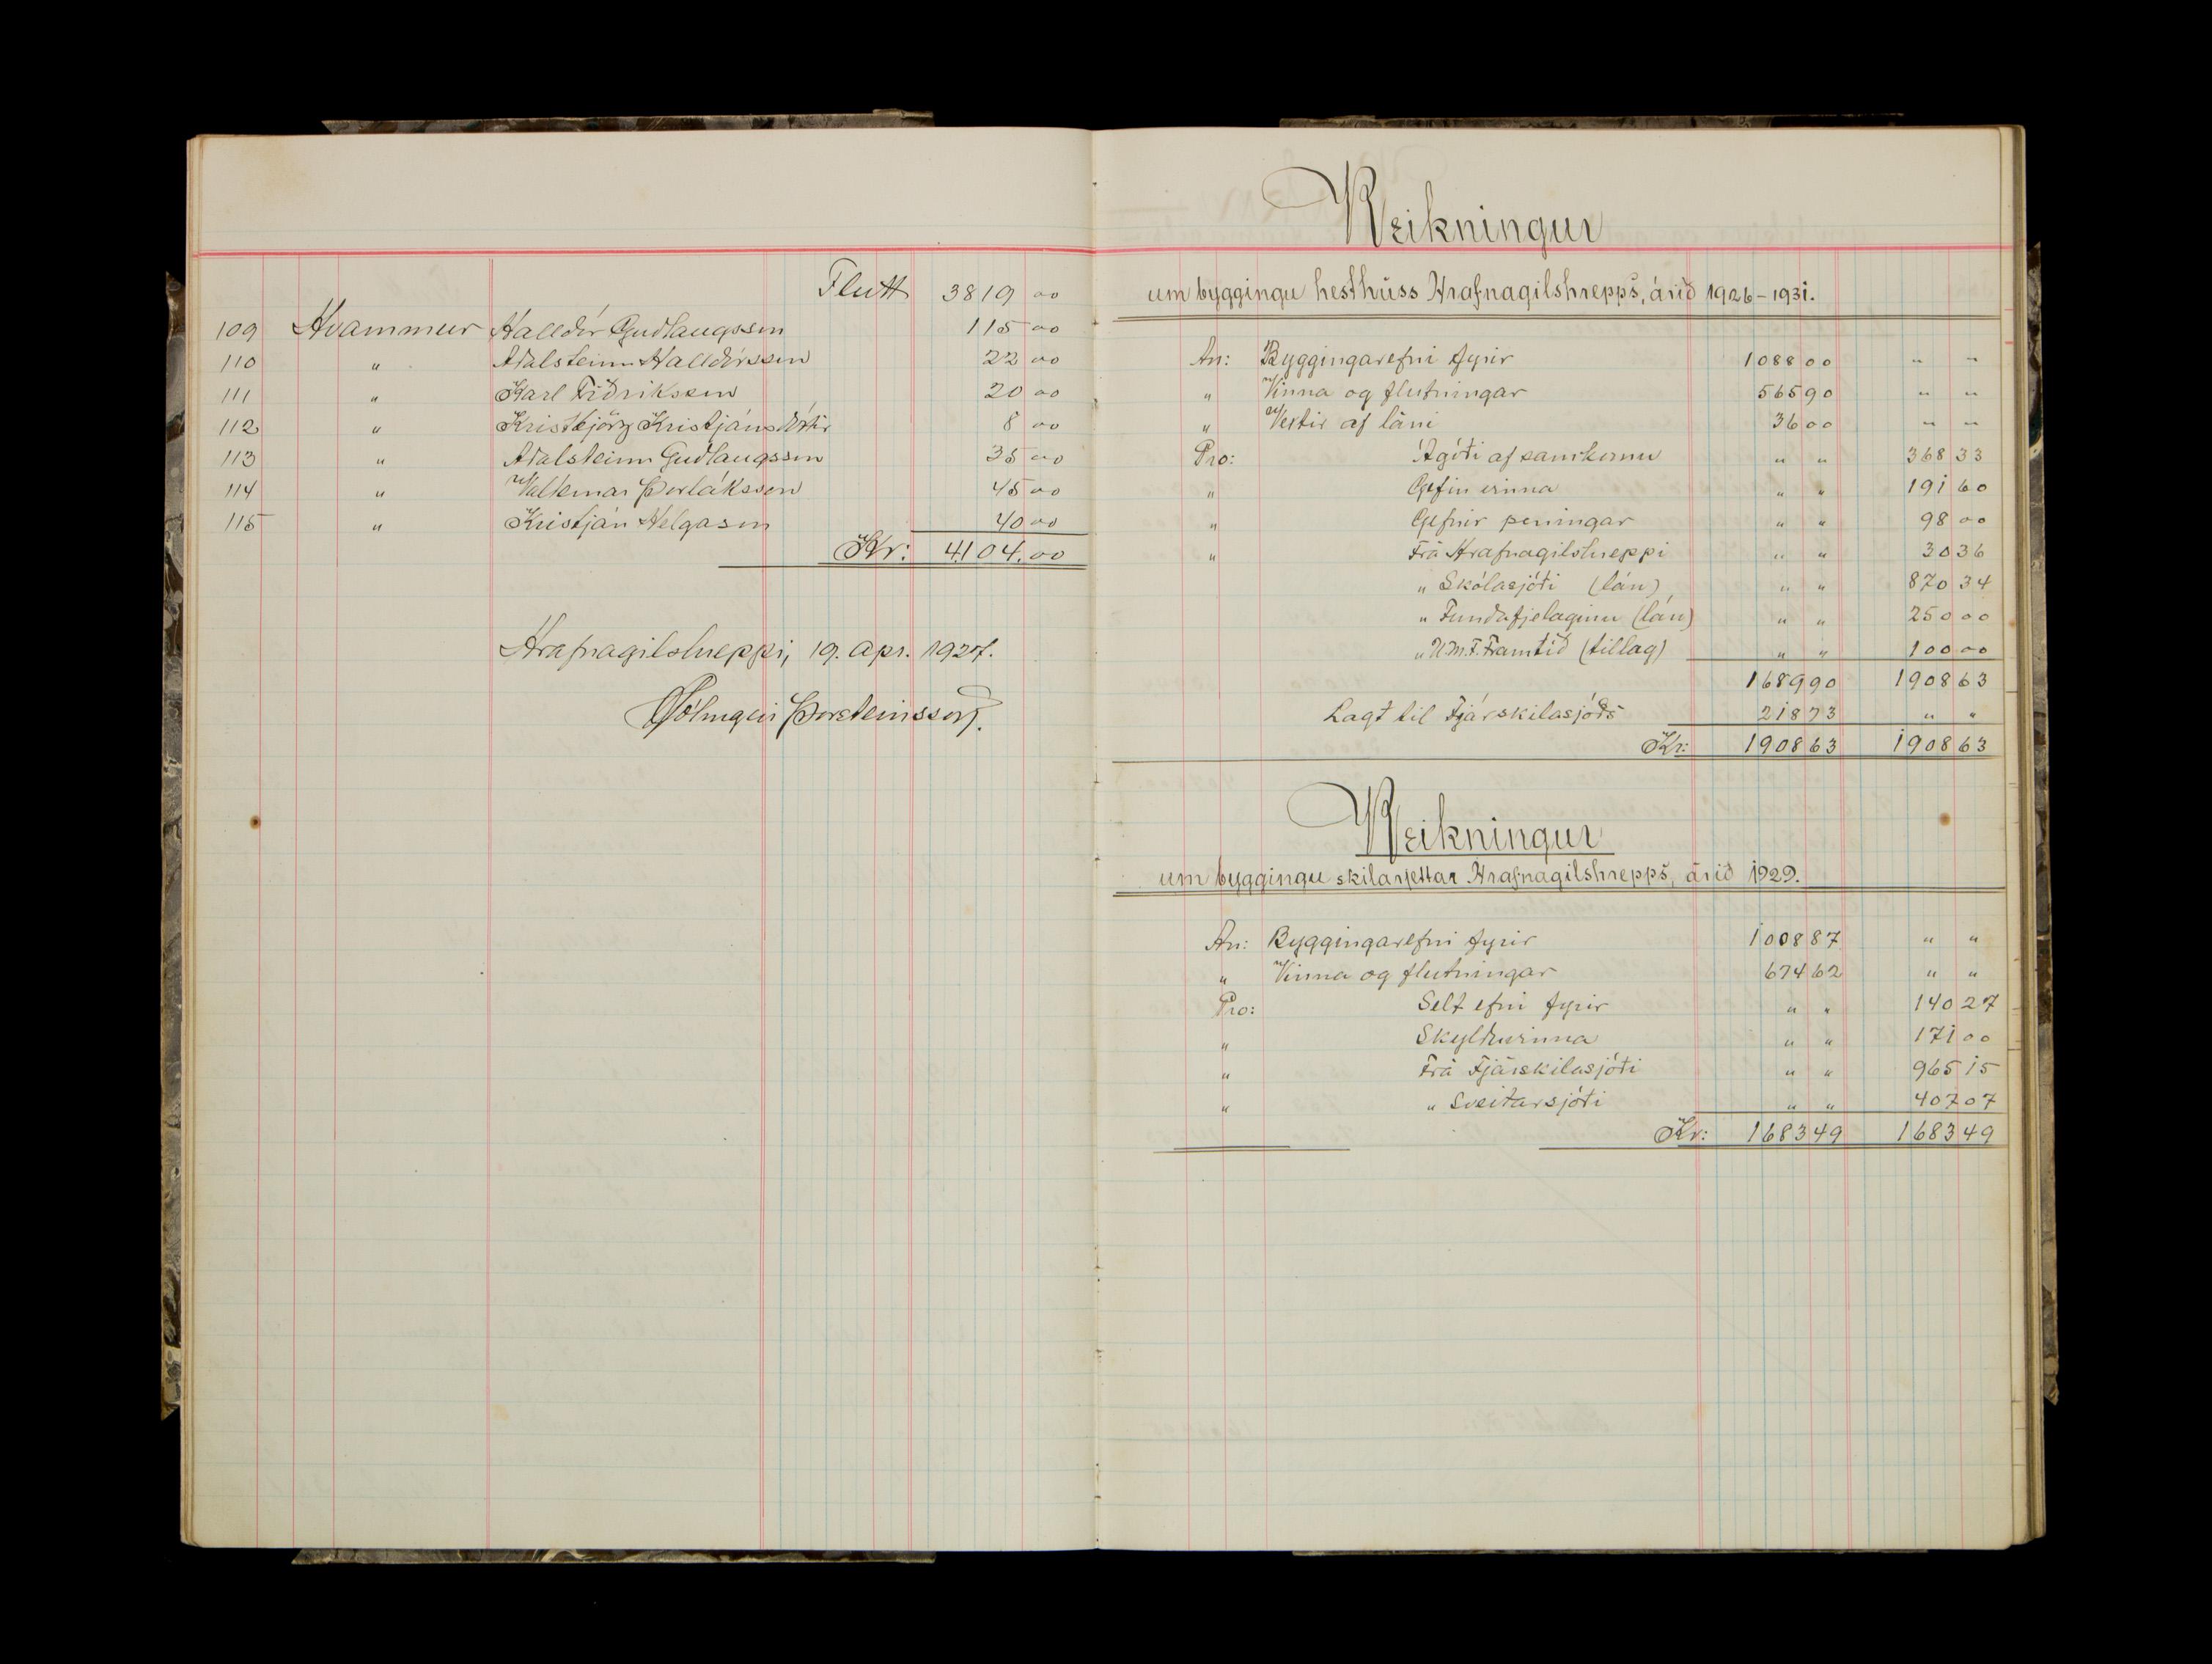 Flutt 3819 00
109 Hvammur Halldór Guðlaugsson 115 00
110 " Aðalsteinn Halldórsson 22 00
111 " Karl Friðriksson 20 00
112 " Kristbjörg Kristjánsdóttir 8 00
113 " Aðalsteinn Guðlaugsson 35 00
114 " Valdemar Þorláksson 45 00
115 " Kristján Helgason 40 00
Kr: 4104.00
Hrafnagilshreppi, 19. apr. 1927.
Hólmgeir Þorsteinsson.
Reikningur
um byggingu hesthúss Hrafnagilshrepps, árið 1926-1931.
An: Byggingarefni fyrir 1088 00 " "
" Vinna og flutningar 565 90 " "
" Vextir af láni 36 00 " "
Pro: Ágóði af samkomu " " 368 33
" Gefin vinna " " 191 60
" Gefnir peningar " " 98 00
" Frá Hrafnagilshreppi " " 30 36
" Skólasjóði (lán) " " 870 34
" Fundafjelaginu (lán) " " 250 00
" U.M.F. Framtíð (tillag) " " 100 00
1689 90 1908 63
Lagt til Fjárskilasjóðs 218 73 " "
Kr: 1908 63 1908 63
Reikningur
um byggingu skilarjettar Hrafnagilshrepps, árið 1929.
An: Byggingarefni fyrir 1008 87 " "
" Vinna og flutningar 674 62 " "
Pro: Selt efni fyrir " " 140 27
" Skylduvinna " " 171 00
" Frá Fjárskilasjóði " " 965 15
" " Sveitarsjóði " " 407 07
Kr: 1683 49 1683 49